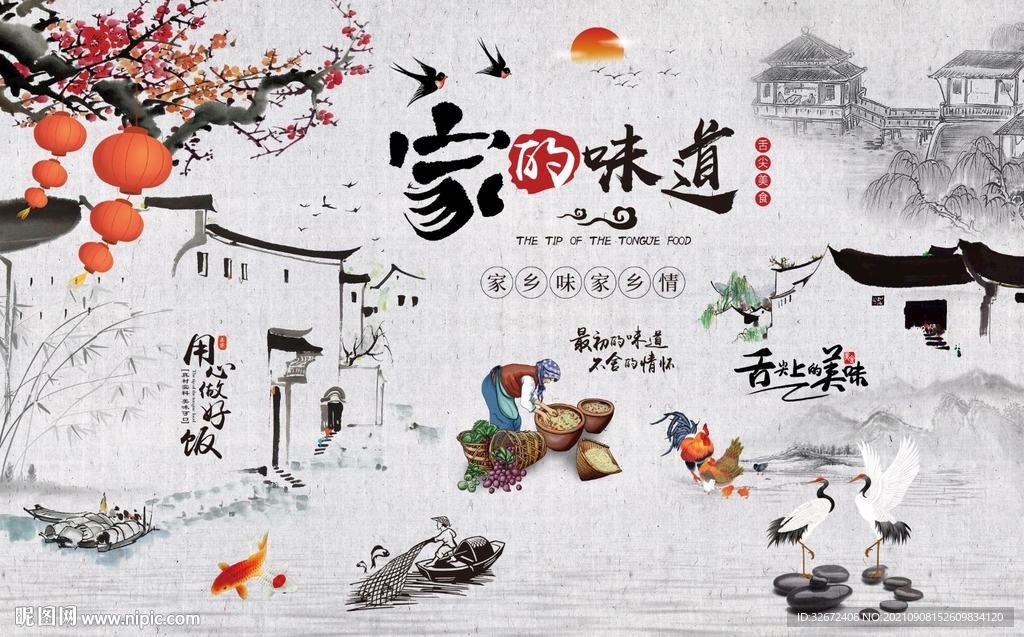 家的味道
舌尖美食
THE TIP OF THE TONGUE FOOD
家乡味家乡情
最初的味道
不舍的情怀
用心做好饭
舌尖上的美味
昵图网 www.nipic.com
ID:32672406 NO:20210908152609834120